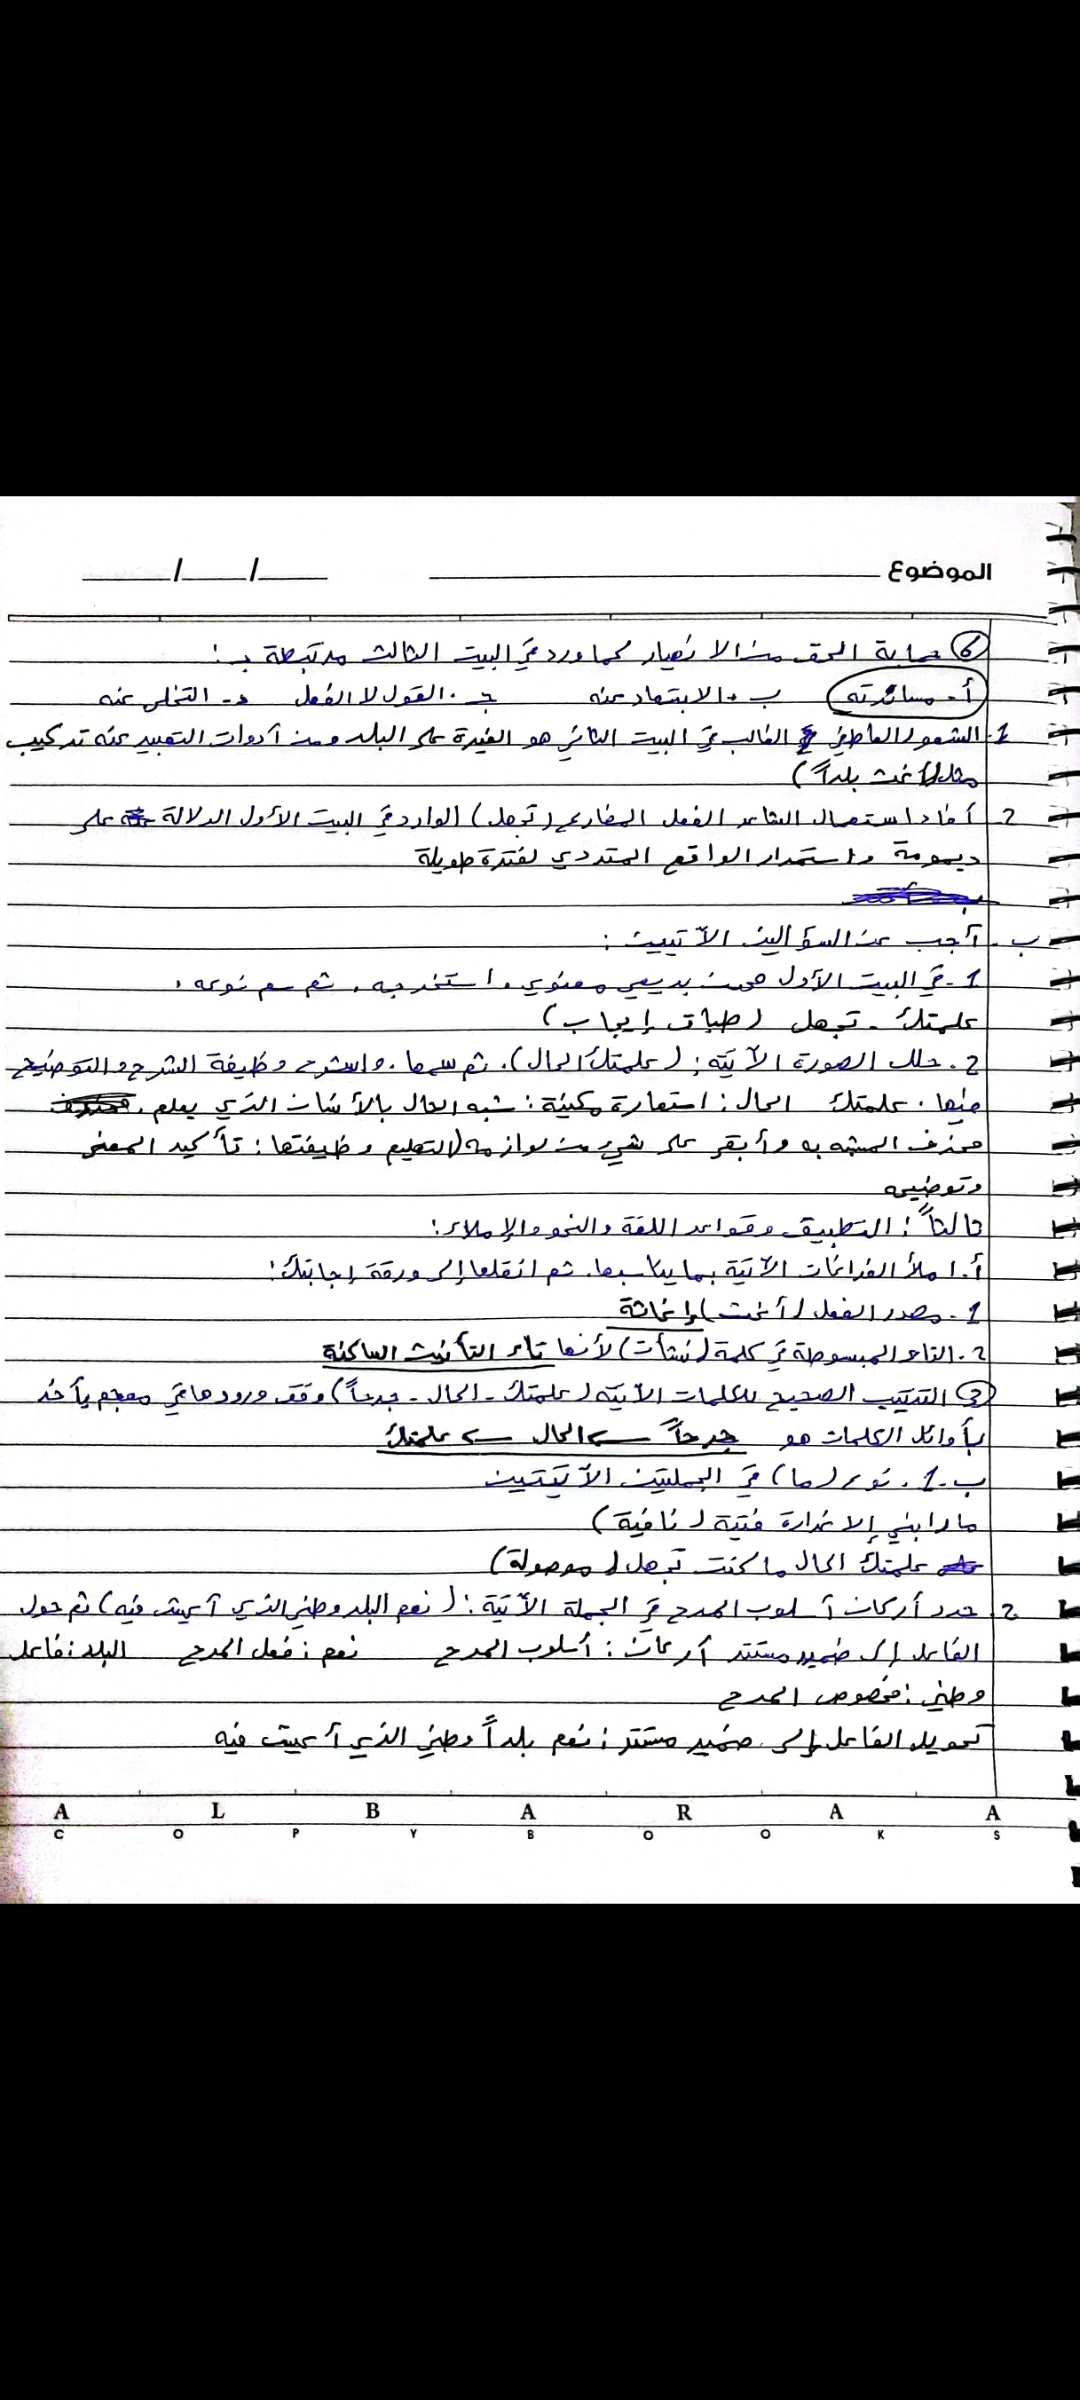 الموضوع ____________ ___/___/___
٦ حماية الحق من الانهيار كما ورد في البيت الثالث مرتبطة بـ:
أ- مساندته ب- الابتعاد عنه جـ- القول لا الفعل د- التخلي عنه
1. الشعور العاطفي الغالب في البيت الثاني هو الغيرة على البلد ومن أدوات التعبير عنه تركيب
مثل (أغث بلداً)
2. أفاد استعمال الشاعر الفعل المضارع (تجهل) الوارد في البيت الأول الدلالة على
ديمومة واستمرار الواقع المتردي لفترة طويلة
ب. أجب عن السؤالين الآتيين:
1- في البيت الأول محسن بديعي معنوي، استخرجه، ثم سم نوعه.
علمتك - تجهل (طباق إيجاب)
2. حلل الصورة الآتية: (علمتك الحال). ثم سمها. واشرح وظيفة الشرح والتوضيح
منها. علمتك الحال: استعارة مكنية: شبه الحال بالأنسان الذي يعلم.
فحذف المشبه به وأبقى على شيء من لوازمه (التعليم وظيفتها: تأكيد المعنى
وتوضيحه
ثالثاً: التطبيق وقواعد اللغة والنحو والإملاء:
أ. املأ الفراغات الآتية بما يناسبها. ثم انقلها إلى ورقة إجابتك:
1- مصدر الفعل (أغث) إغاثة
2. التاء المبسوطة في كلمة (نشأت) لأنها تاء التأنيث الساكنة
3 الترتيب الصحيح للكلمات الآتية (علمتك - الحال - جرحاً) وفق ورودها في معجم يأخذ
بأوائل الكلمات هو جرحاً ← الحال ← علمتك
ب-1. نوع (ما) في الجملتين الآتيتين
ما رابني إلا غرارة فتية (نافية)
علمتك الحال ما كنت تجهل (موصولة)
2. حدد أركان أسلوب المدح في الجملة الآتية: (نعم البلد وطني الذي أعيش فيه) ثم حول
الفاعل إلى ضمير مستتر أركان: أسلوب المدح نعم: فعل المدح البلد: فاعل
وطني: مخصوص المدح
تحويل الفاعل إلى ضمير مستتر: نعم بلداً وطني الذي أعيش فيه
A L B A R A A
C O P Y B O O K S